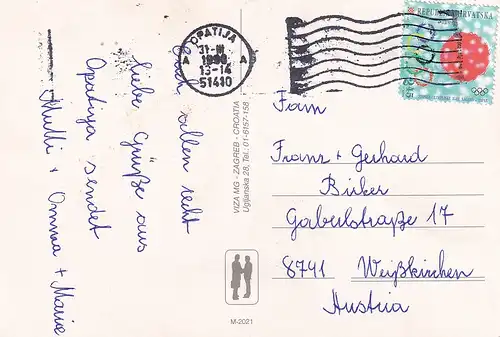 Euch allen recht
liebe Grüße aus
Opatija sendet
Mutti + Omma + Maria
OPATIJA
31-III
13-14
51410
A A
REPUBLIKA HRVATSKA
VIZA MG - ZAGREB - CROATIA
Ugljanska 28, Tel.: 01-6157-158
M-2021
Fam
Franz + Gerhard
Birker
Gaberlstraße 17
8741 Weißkirchen
Austria